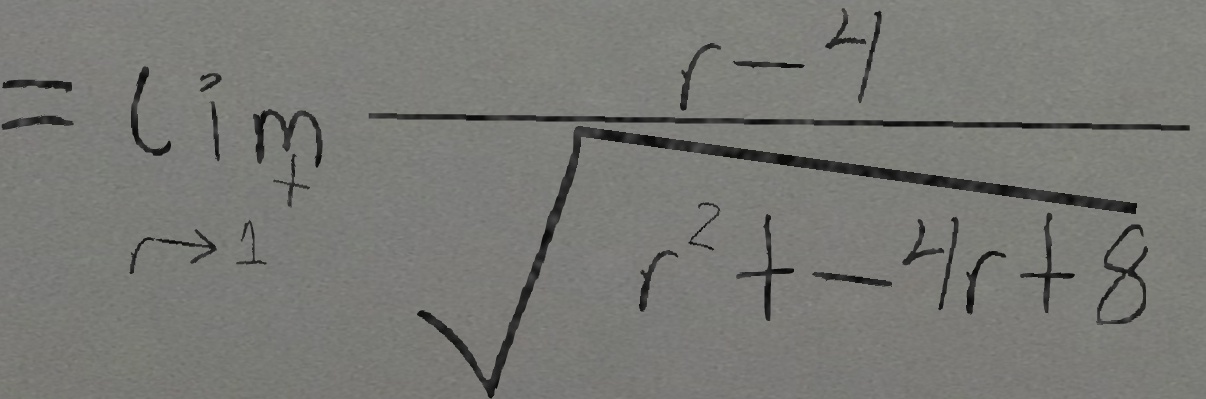 = \lim_{r \to 1^+} \frac{r-4}{\sqrt{r^2+-4r+8}}